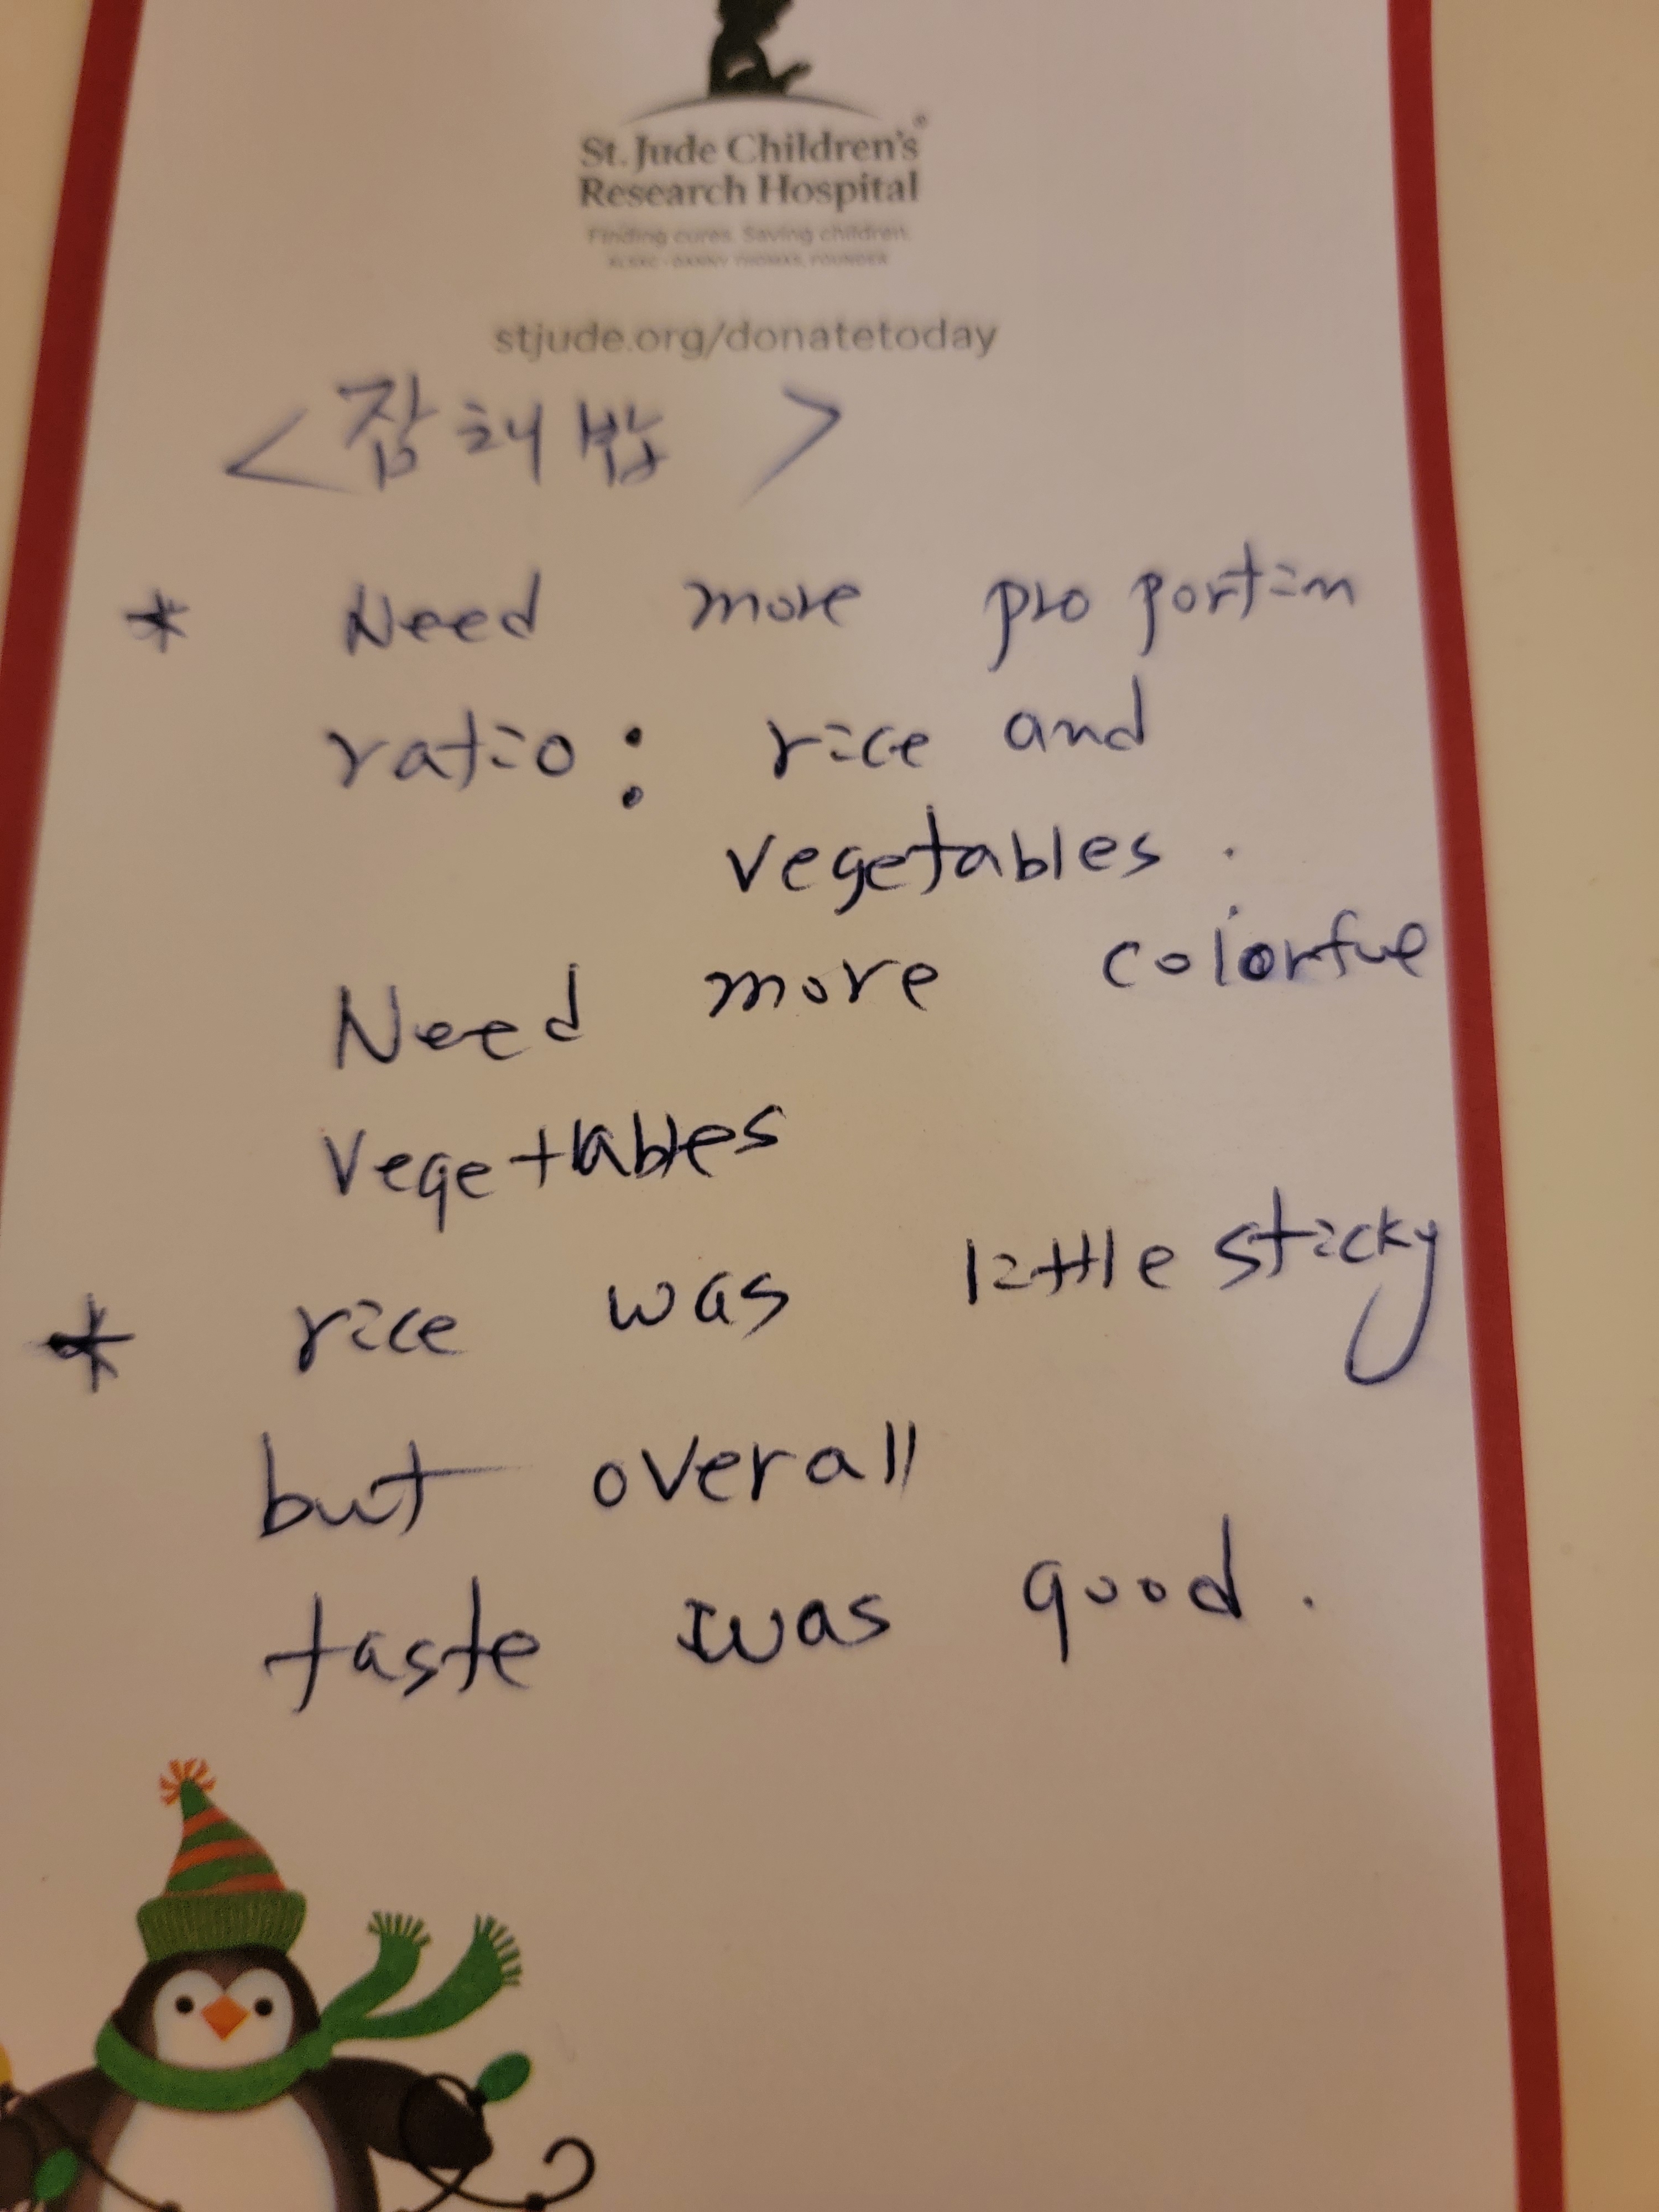 St. Jude Children's®
Research Hospital
Finding cures. Saving children.
ALSAC • DANNY THOMAS, FOUNDER
stjude.org/donatetoday
<잡채밥>
* Need more proportion
ratio: rice and
vegetables.
Need more colorful
Vegetables
* rice was little sticky
but overall
taste was good.